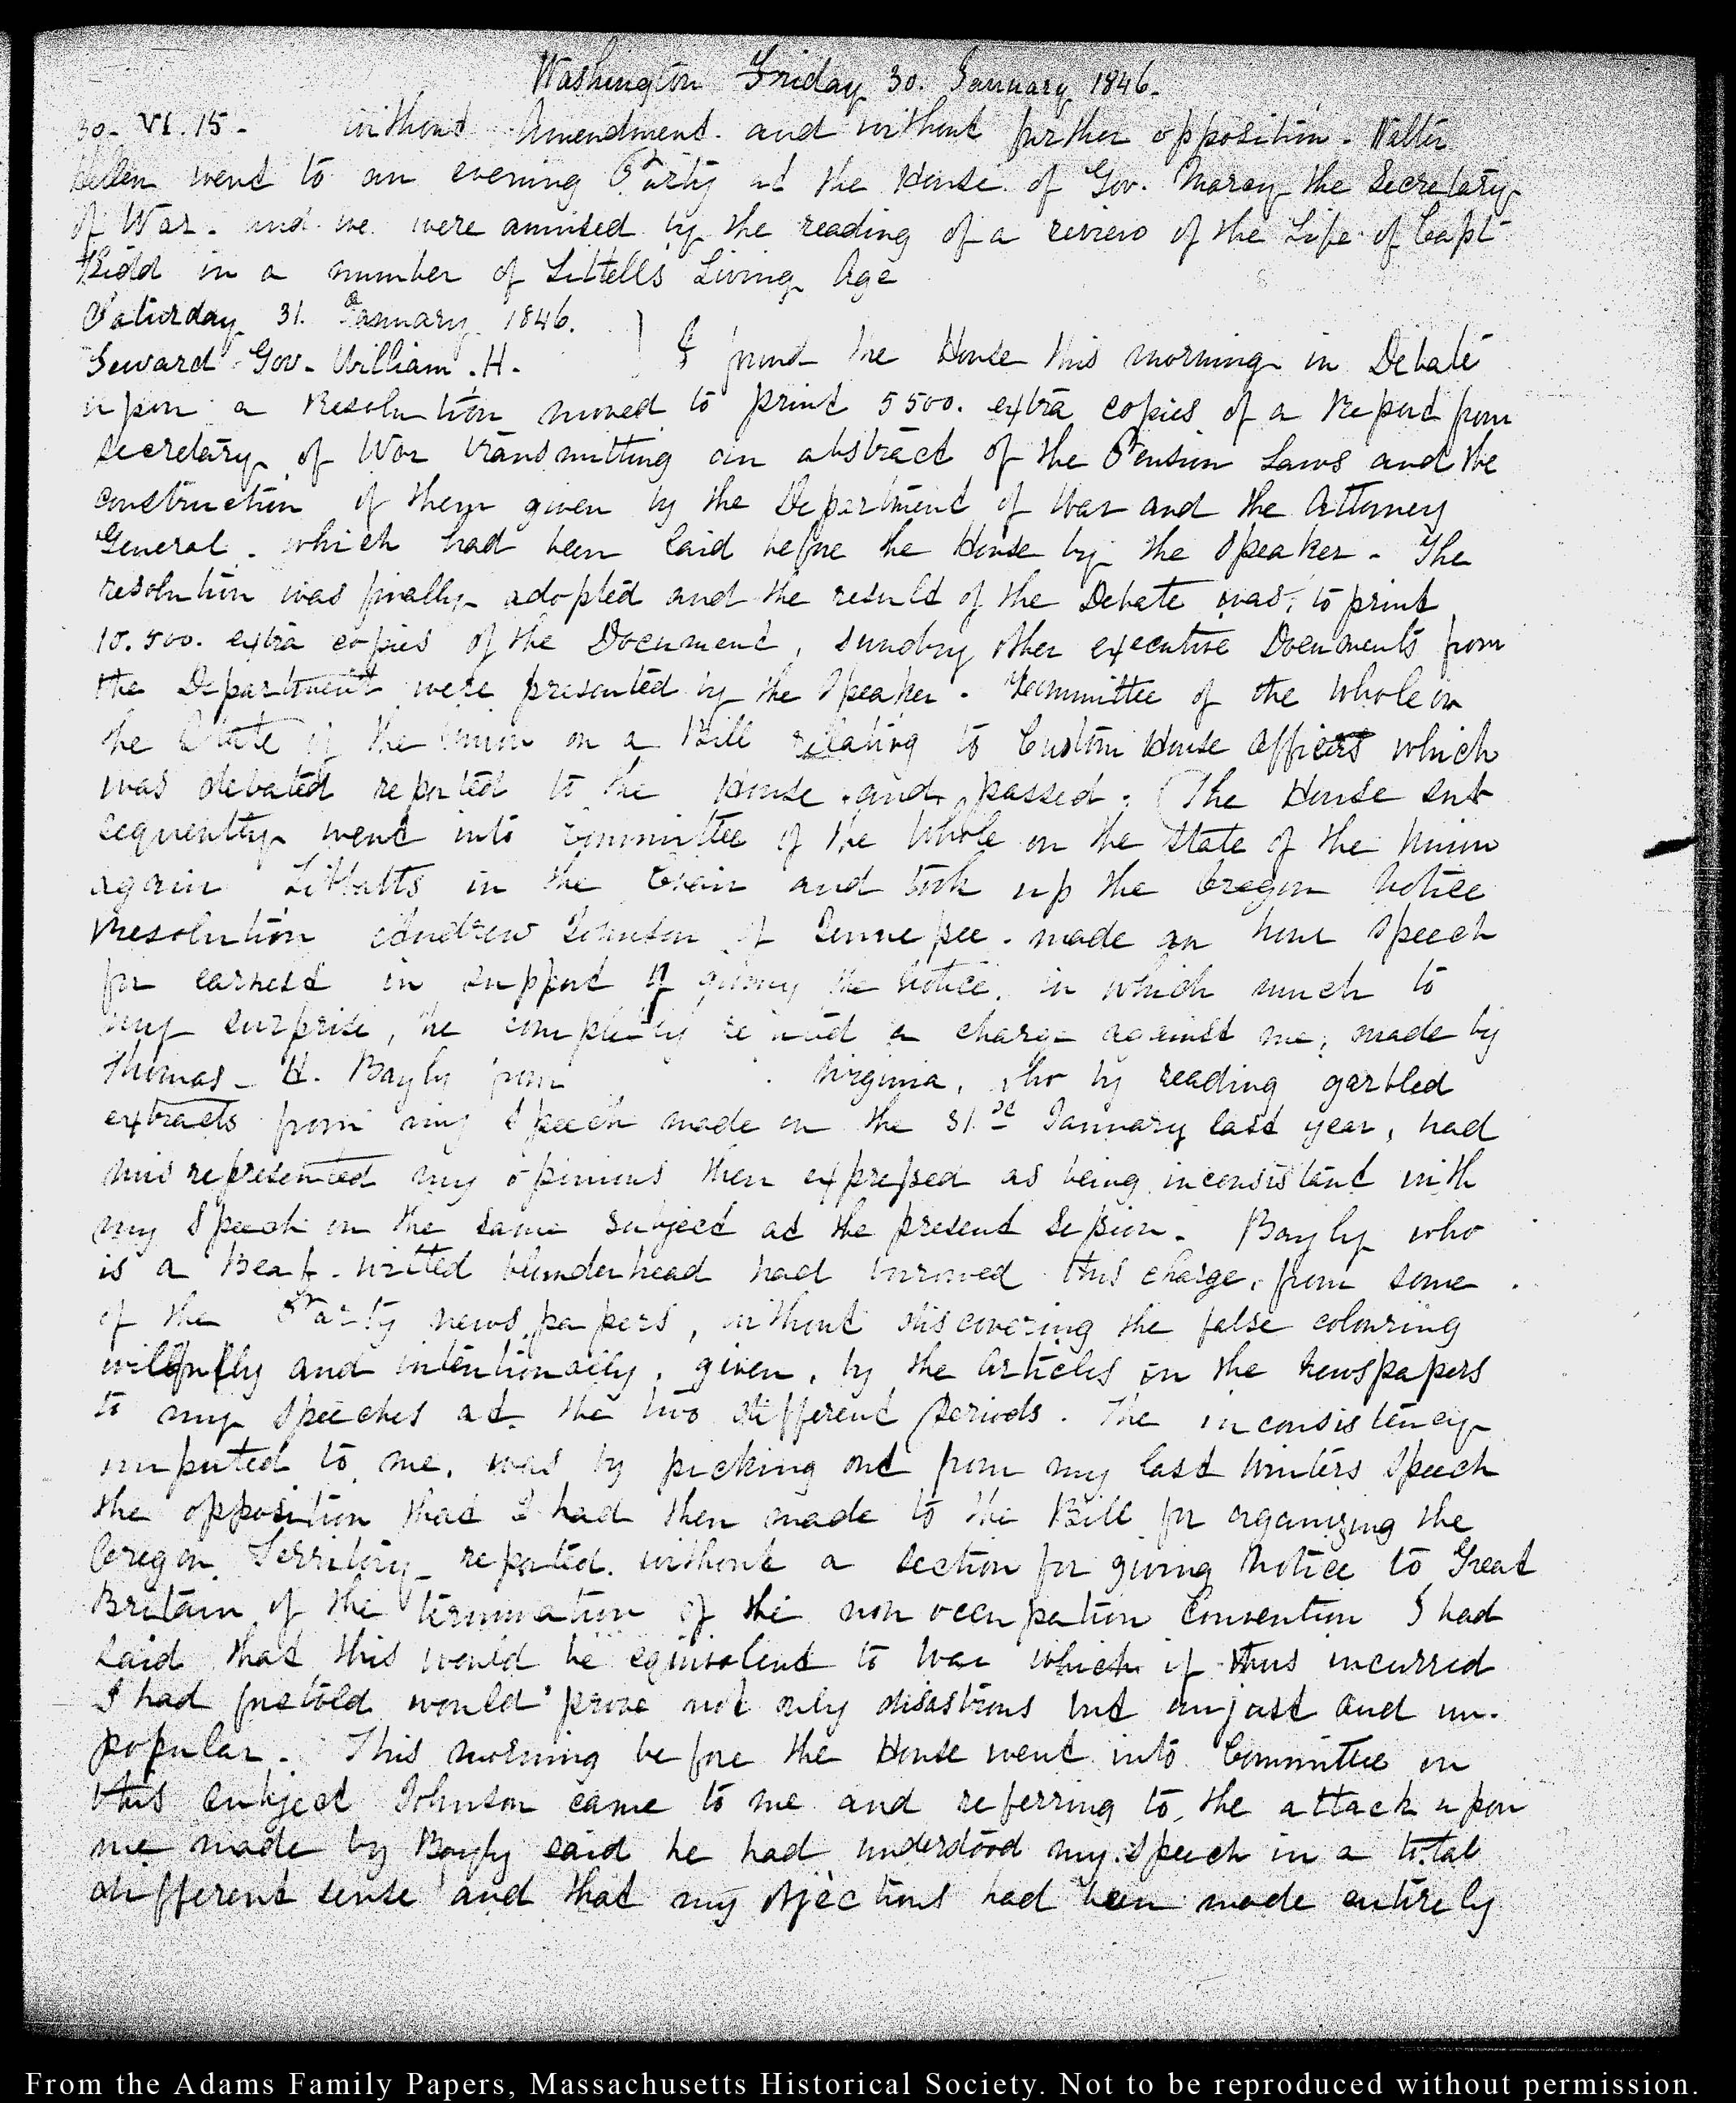 Washington Friday 30. January 1846.
30. VI. 15. without Amendment and without further opposition. Walter
Hellen went to an evening Party at the House of Gov. Marcy the Secretary
of War. and we were amused by the reading of a review of the Life of Capt
Kidd in a number of Littells Living Age
Saturday 31. January 1846.
Seward Gov. William. H. } I found the House this morning in Debate
upon a Resolution moved to print 5500. extra copies of a Report from
Secretary of War transmitting an abstract of the Pension Laws and the
construction of them given by the Department of War and the Attorney
General. which had been laid before the House by the Speaker. The
resolution was finally adopted and the result of the Debate was, to print
10.500. extra copies of the Document, sundry other executive Documents from
the Department were presented by the Speaker. Committee of the whole on
the State of the Union on a Bill relating to Custom House officers which
was debated reported to the House and passed. The House sub
sequently went into Committee of the Whole on the State of the Union
again Tibbatts in the Chair and took up the Oregon Notice
Resolution Andrew Johnson of Tennessee. made an hour Speech
for earnest in support of giving the Notice. in which much to
my surprise, he completely refuted a charge against me, made by
Thomas. H. Bayly from Virginia, who by reading garbled
extracts from my Speech made on the 31st January last year, had
misrepresented my opinions then expressed as being inconsistent with
my Speech on the same subject at the present Session. Bayly who
is a Beef-witted blunderhead had borrowed this charge, from some
of the Party news papers, without discovering the false colouring
wilfully and intentionally, given, by the Articles in the Newspapers
to my Speeches at the two different periods. The inconsistency
imputed to me, was by picking out from my last Winters Speech
the opposition that I had then made to the Bill for organizing the
Oregon Territory reported. without a section for giving Notice to Great
Britain of the termination of the non occupation Convention I had
said that this would be equivalent to War which if thus incurred
I had foretold would prove not only disastrous but unjust and un-
popular. This morning before the House went into Committee on
this subject Johnson came to me and referring to the attack upon
me made by Bayly said he had understood my Speech in a total
different sense and that my objections had been made entirely
From the Adams Family Papers, Massachusetts Historical Society. Not to be reproduced without permission.